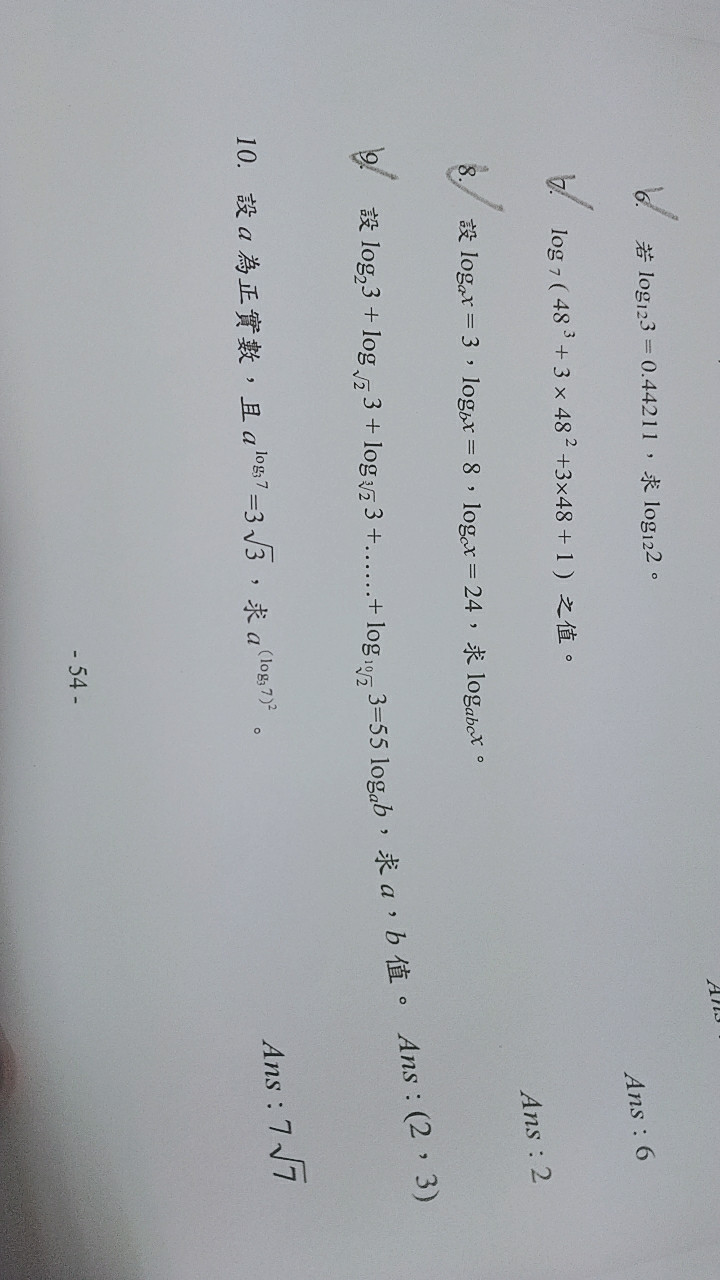 Ans
6. 若 log₁₂3 = 0.44211,求 log₁₂2。
7. log₇(48³ + 3 × 48² +3×48 + 1)之值。 Ans : 6
8. 設 logₐx = 3,log_b x = 8,log_c x = 24,求 log_{abc} x。 Ans : 2
9. 設 log₂3 + log_{√2} 3 + log_{∛2} 3 +……+ log_{¹⁰√2} 3=55 logₐb,求 a,b 值。 Ans : (2,3)
10. 設 a 為正實數,且 a^{log₃7} =3√3,求 a^{(log₃7)²}。 Ans : 7√7
- 54 -